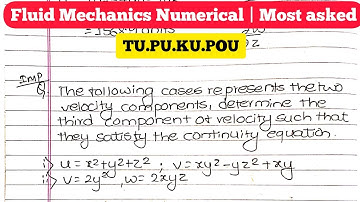 Fluid Mechanics Numerical | Most asked
TU.PU.KU.POU
IMP
Q. The following cases represents the two
velocity components, determine the
third component of velocity such that
they satisfy the continuity equation.
i> u = x²+y²+z² ; v = xy²-yz²+xy
ii> v = 2y², w = 2xyz